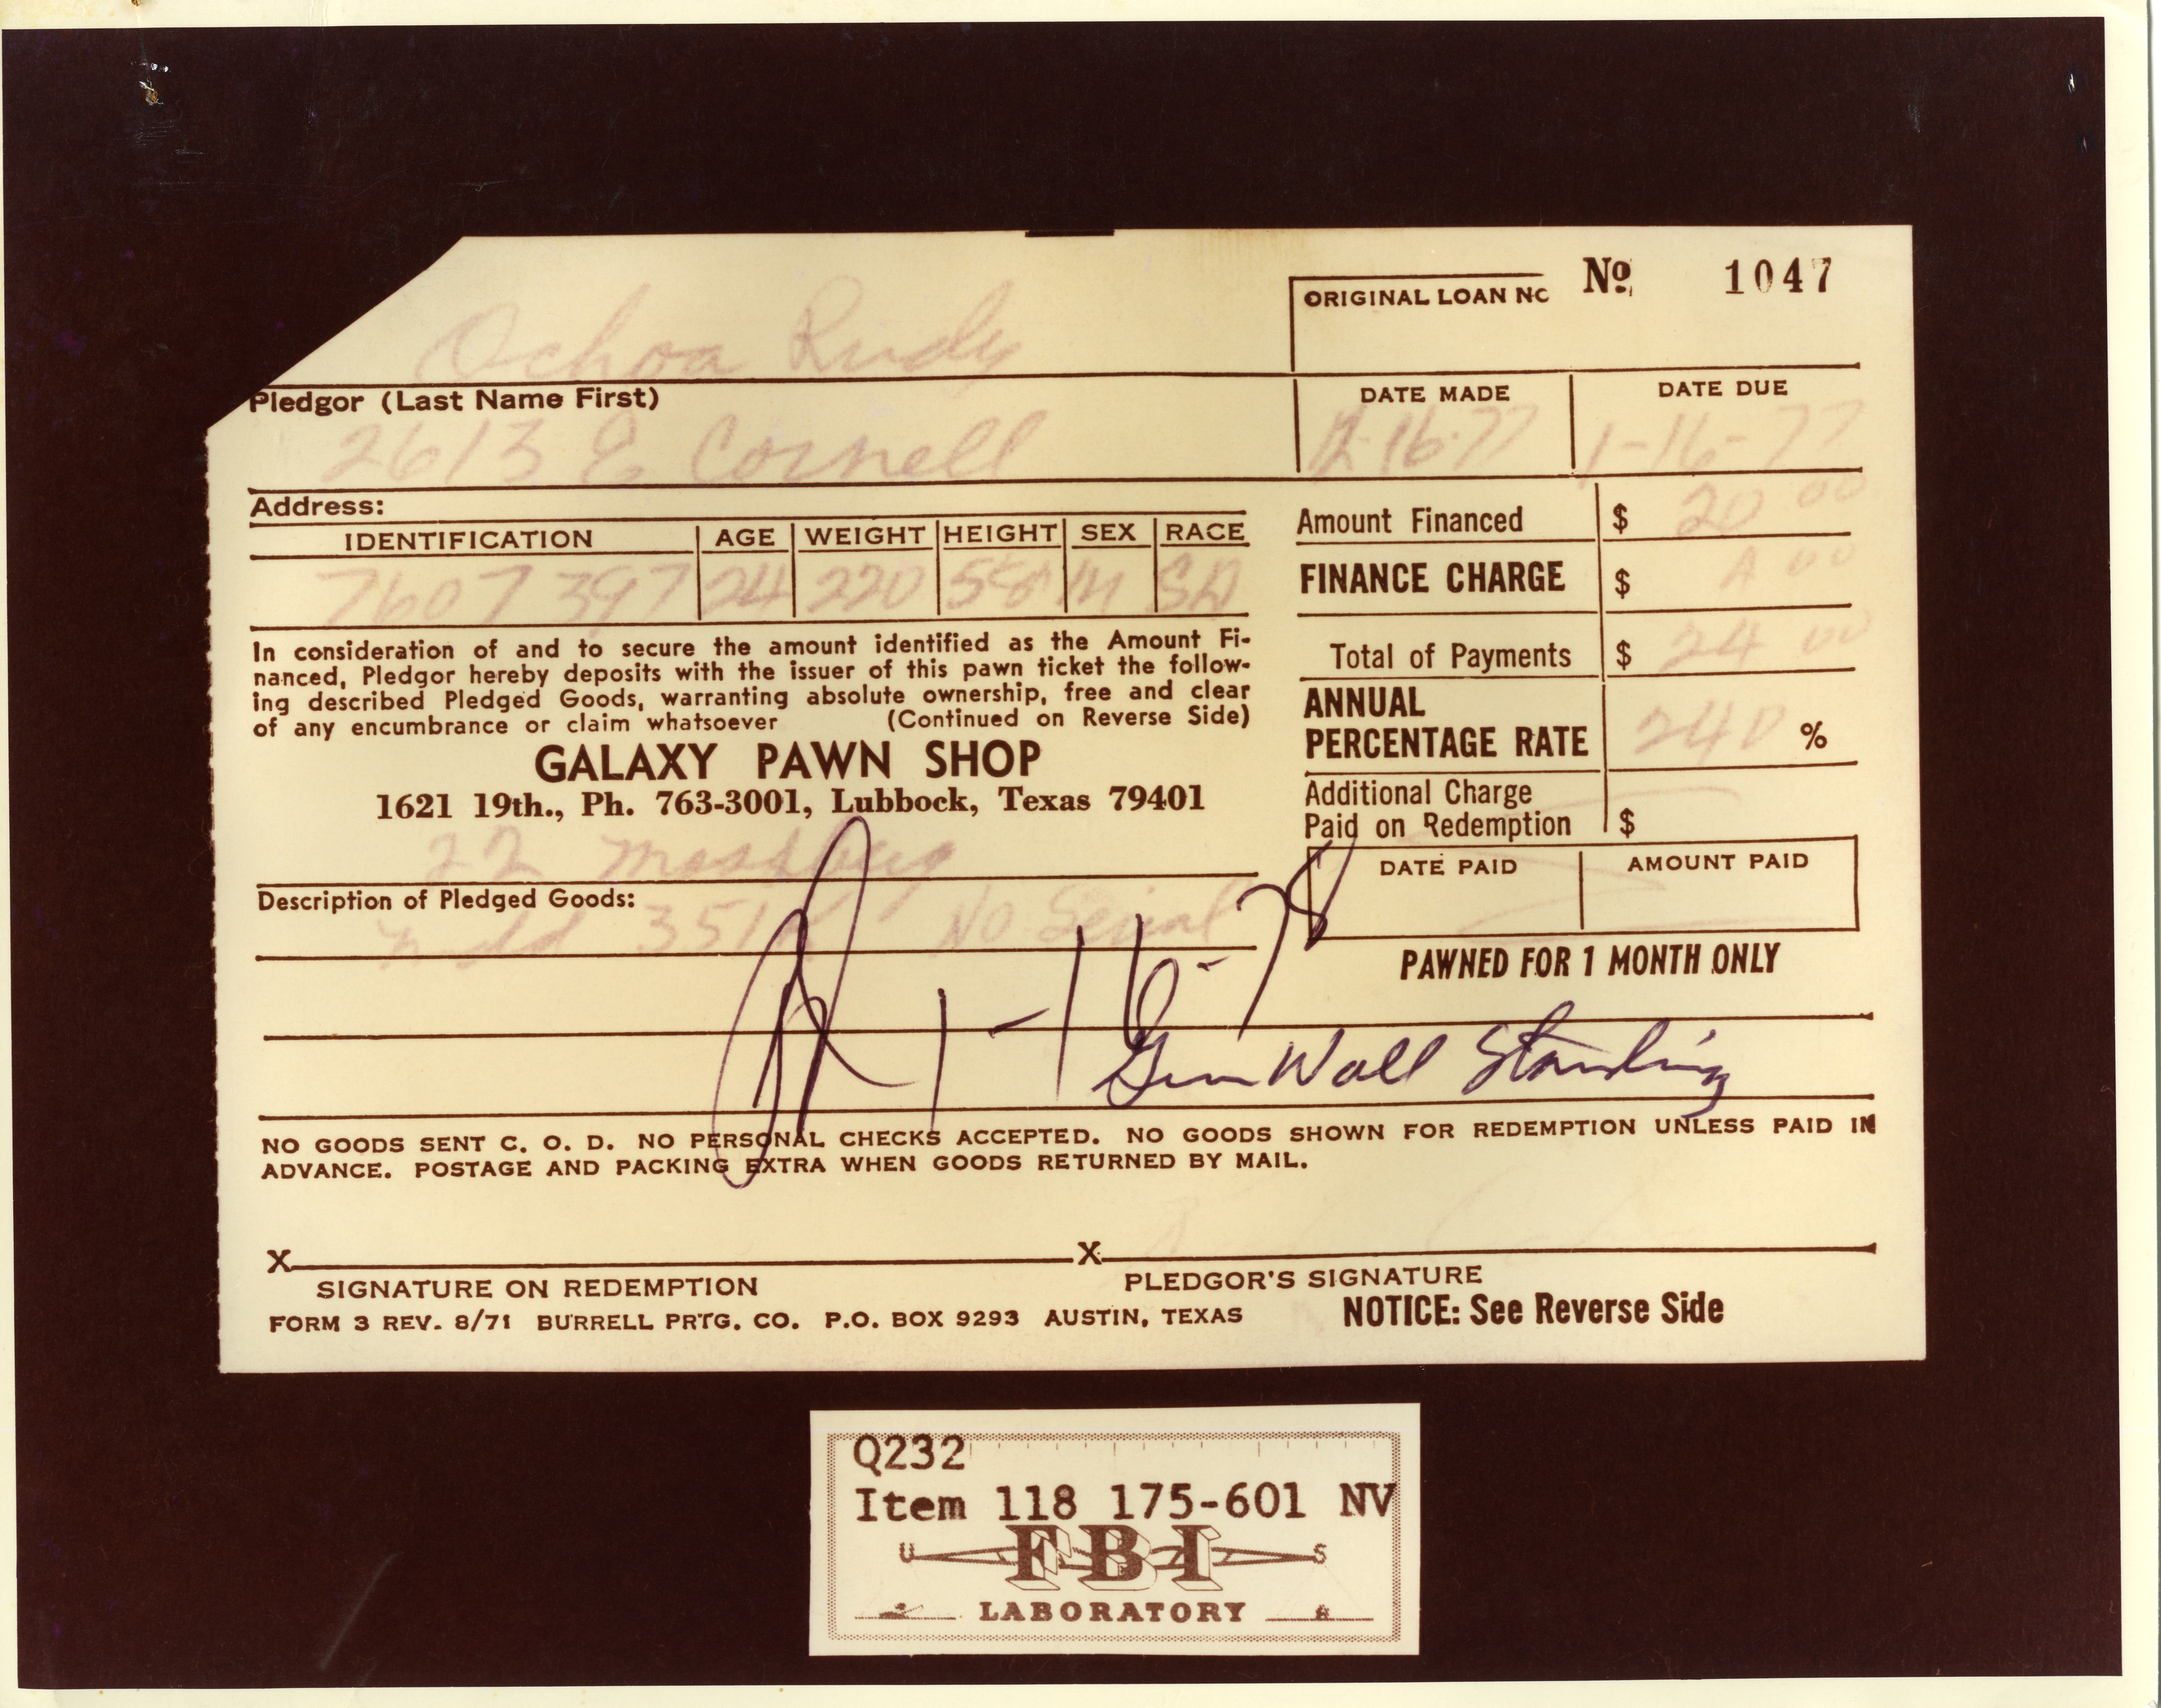 Nº 1047
ORIGINAL LOAN NO
Ochoa Rudy
Pledgor (Last Name First)
DATE MADE DATE DUE
2613 E Cornell
12-16-77 1-16-77
Address:
IDENTIFICATION AGE WEIGHT HEIGHT SEX RACE
7607397 24 220 58 M
Amount Financed $ 20 00
FINANCE CHARGE $ 4 00
Total of Payments $ 24 00
ANNUAL
PERCENTAGE RATE 240 %
Additional Charge
Paid on Redemption $
DATE PAID AMOUNT PAID
In consideration of and to secure the amount identified as the Amount Fi-
nanced, Pledgor hereby deposits with the issuer of this pawn ticket the follow-
ing described Pledged Goods, warranting absolute ownership, free and clear
of any encumbrance or claim whatsoever (Continued on Reverse Side)
GALAXY PAWN SHOP
1621 19th., Ph. 763-3001, Lubbock, Texas 79401
22 Mossberg
Description of Pledged Goods:
351K No Serial
PAWNED FOR 1 MONTH ONLY
1-16-78
Gun Wall Standing
NO GOODS SENT C. O. D. NO PERSONAL CHECKS ACCEPTED. NO GOODS SHOWN FOR REDEMPTION UNLESS PAID IN
ADVANCE. POSTAGE AND PACKING EXTRA WHEN GOODS RETURNED BY MAIL.
X X
SIGNATURE ON REDEMPTION PLEDGOR'S SIGNATURE
FORM 3 REV. 8/71 BURRELL PRTG. CO. P.O. BOX 9293 AUSTIN, TEXAS NOTICE: See Reverse Side
Q232
Item 118 175-601 NV
U FBI S
LABORATORY